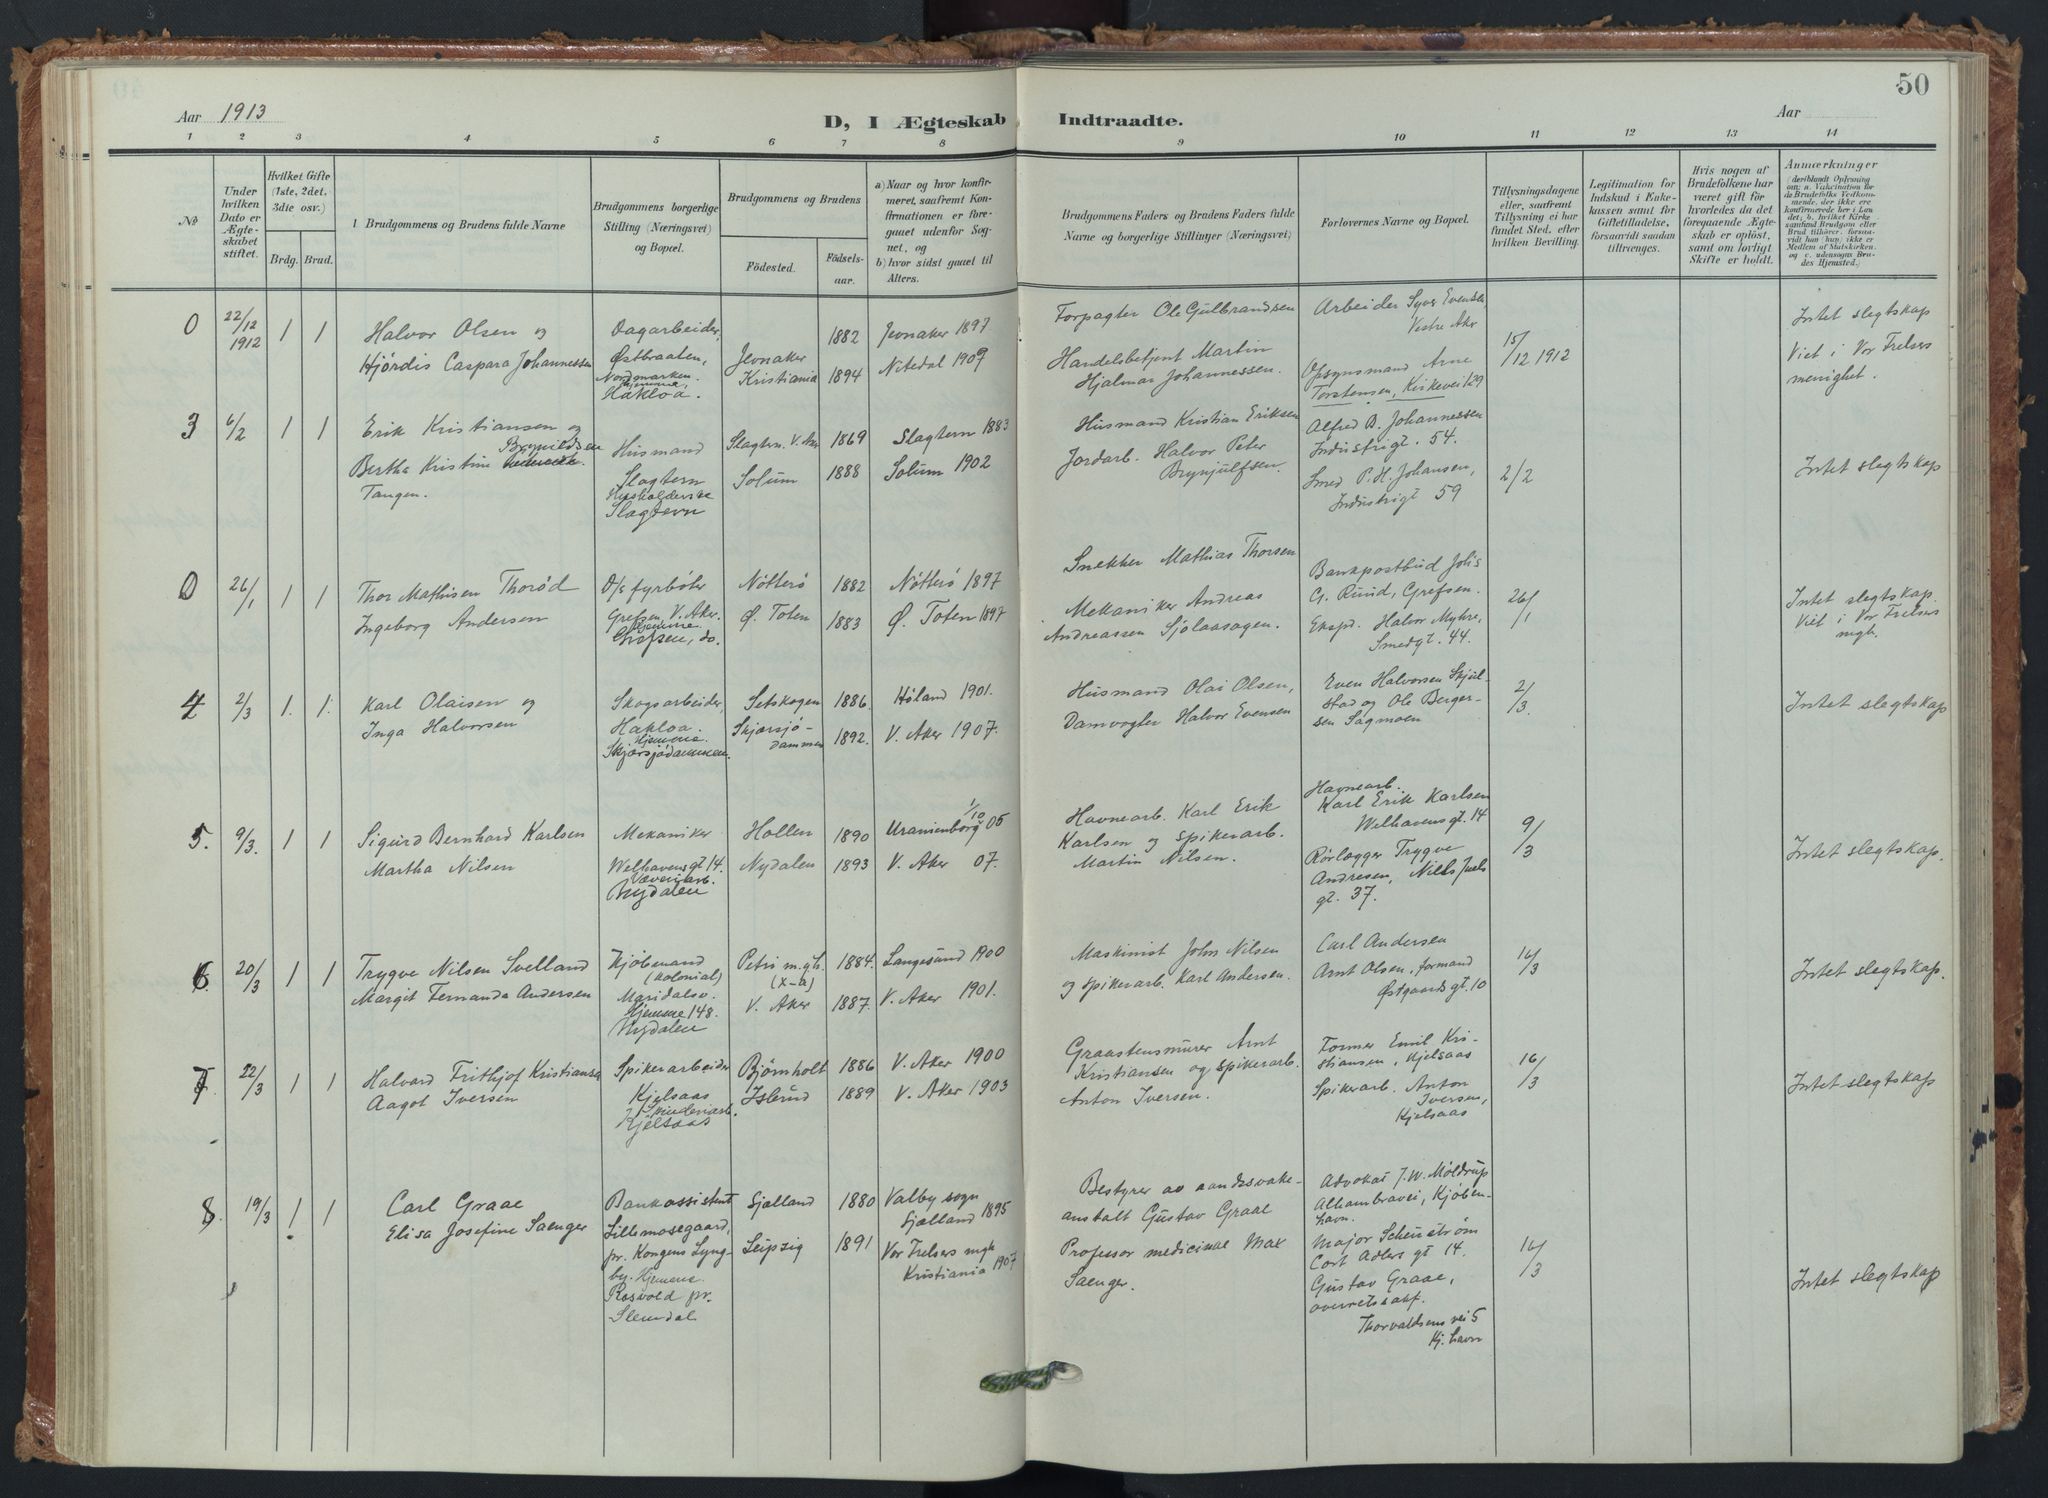 50
Aar 1913
D, I Ægteskab Indtraadte.
Aar
1 2 3 4 5 6 7 8 9 10 11 12 13 14
№
Under hvilken Dato er Ægteskabet stiftet.
Hvilket Gifte (1ste, 2det, 3die osv.)
Brdg. Brud.
Brudgommens og Brudens fulde Navne
Brudgommens borgerlige Stilling (Næringsvei) og Bopæl.
Brudgommens og Brudens
Födested.
Födselsaar.
a) Naar og hvor konfirmeret, saafremt Konfirmationen er foregaaet udenfor Sognet, og
b) hvor sidst gaaet til Alters.
Brudgommens Faders og Brudens Faders fulde Navne og borgerlige Stillinger (Næringsvei)
Forlovernes Navne og Bopæl.
Tillysningsdagene eller, saafremt Tillysning ei har fundet Sted, efter hvilken Bevilling.
Legitimation for Indskud i Enkekassen samt for Giftetilladelse, forsaavidt saadan tiltrænges.
Hvis nogen af Brudefolkene har været gift för hvorledes da det foregaaende Ægteskab er oplöst, samt om lovligt Skifte er holdt.
Anmærkninger
(deriblandt Oplysning om: a. Vakcination for de Brudefolks Vedkommende, der ikke ere konfirmerede her i Landet; b. hvilket Kirkesamfund Brudgom eller Brud tilhörer, forsaavidt han (hun) ikke er Medlem af Statskirken og c. udensogns Brudes Hjemsted.)
0 22/12 1912 1 1
Halvor Olsen og
Hjørdis Caspara Johannessen
Dagarbeider,
Østbraaten,
Nordmarken.
Hjemme,
Hakloa.
Jevnaker 1882
Kristiania 1894
Jevnaker 1897
Nitedal 1909
Forpagter Ole Gulbrandsen
Handelsbetjent Martin
Hjalmar Johannessen.
Arbeider Syver Evensen,
Vestre Aker
Opsynsmand Arne
Torstensen, Kirkevei 129
15/12 1912
Intet slegtskap
Viet i Vor Frelsers
menighet.
3 6/2 1 1
Erik Kristiansen og
Brynildsen
Bertha Kristine
Tangen.
Husmand
Slagtern
Husholderske
Slagtern
Slagtern. V. Aker 1869
Solum 1888
Slagtern 1883
Solum 1902
Husmand Kristian Eriksen
Jordarb. Halvor Peter
Brynjulfsen.
Alfred B. Johannessen
Industrigt. 54.
Smed P. H. Johansen,
Industrigt 59
2/2
Intet slegtskap
0 26/1 1 1
Thor Mathisen Thorød
Ingeborg Andersen
O/s fyrbøter
Grefsen, V. Aker.
Hjemme
Grefsen, do.
Nøtterø 1882
Ø. Toten 1883
Nøtterø 1897
Ø. Toten 1897
Snekker Mathias Thorsen
Mekaniker Andreas
Andreassen Sjølaasagen.
Bankpostbud Johs
G. Ruud, Grefsen.
Eksp. Halvor Myhre,
Smedgt. 44.
26/1
Intet slegtskap.
Viet i Vor Frelsers
mgh.
4 2/3 1. 1.
Karl Olaisen og
Inga Halvorsen
Skogsarbeider,
Hakloa.
Hjemme
Skjærsjødammen.
Setskogen 1886.
Skjærsjø-
dammen 1892.
Høland 1901.
V. Aker 1907.
Husmand Olai Olsen,
Damvogter Halvor Evensen
Even Halvorsen Skjul-
stad og Ole Berger-
sen Sagmoen
2/3
Intet slegtskap
5. 9/3. 1 1
Sigurd Bernhard Karlsen
Martha Nilsen
Mekaniker
Welhavensgt 14.
Væveriarb.
Nydalen
Hollen 1890
Nydalen 1893
1/10
Uranienborg 05
V. Aker 07.
Havnearb. Karl Erik
Karlsen og Spikerarb.
Martin Nilsen.
Havnearb.
Karl Erik Karlsen
Welhavensgt. 14
Rørlægger Trygve
Andresen, Niels Juels
gt. 37.
9/3
Intet slegtskap.
6 20/3 1 1
Trygve Nilsen Svelland
Margit Fernanda Andersen
Kjøbmand
(Kolonial)
Maridalsv.
148.
Hjemme
Nydalen
Petri mgh.
(X-a) 1884.
V. Aker 1887.
Langesund 1900
V. Aker 1901.
Maskinist John Nilsen
og Spikerarb. Karl Andersen.
Carl Andersen
Arnt Olsen, formand
Østgaards gt. 10
16/3
Intet slegtskap.
7 22/3 1 1
Halvard Frithjof Kristiansen
Aagot Iversen
Spikerarbeider
Kjelsaas
Kjelsaas
Bjørnholt 1886
Islund 1889
V. Aker 1900
V. Aker 1903
Graastensmurer Arnt
Kristiansen og Spikerarb.
Anton Iversen.
Former Emil Kris-
tiansen, Kjelsaas
Spikerarb. Anton
Iversen,
Kjelsaas
16/3
Intet slegtskap
8. 19/3 1 1
Carl Graae
Elisa Josefine Saenger
Bankassistent
Lillemosegaard,
pr. Kongens Lyng-
by. Hjemme
Rosvold pr.
Slemdal
Sjælland 1880
Leipzig 1891
Valby sogn
Sjælland 1895
Vor Frelsers mgh
Kristiania 1907
Bestyrer av aandssvake-
anstalt Gustav Graae
Professor medicinæ Max
Saenger.
Advokat J. W. Møldrup
Alhambravei, Kjøben-
havn.
Major Scheuström
Cort Adlers gt 14.
Gustav Graae,
overretssakf.
Thorvaldsens vei 5
Kj.havn
16/3
Intet slegtskap